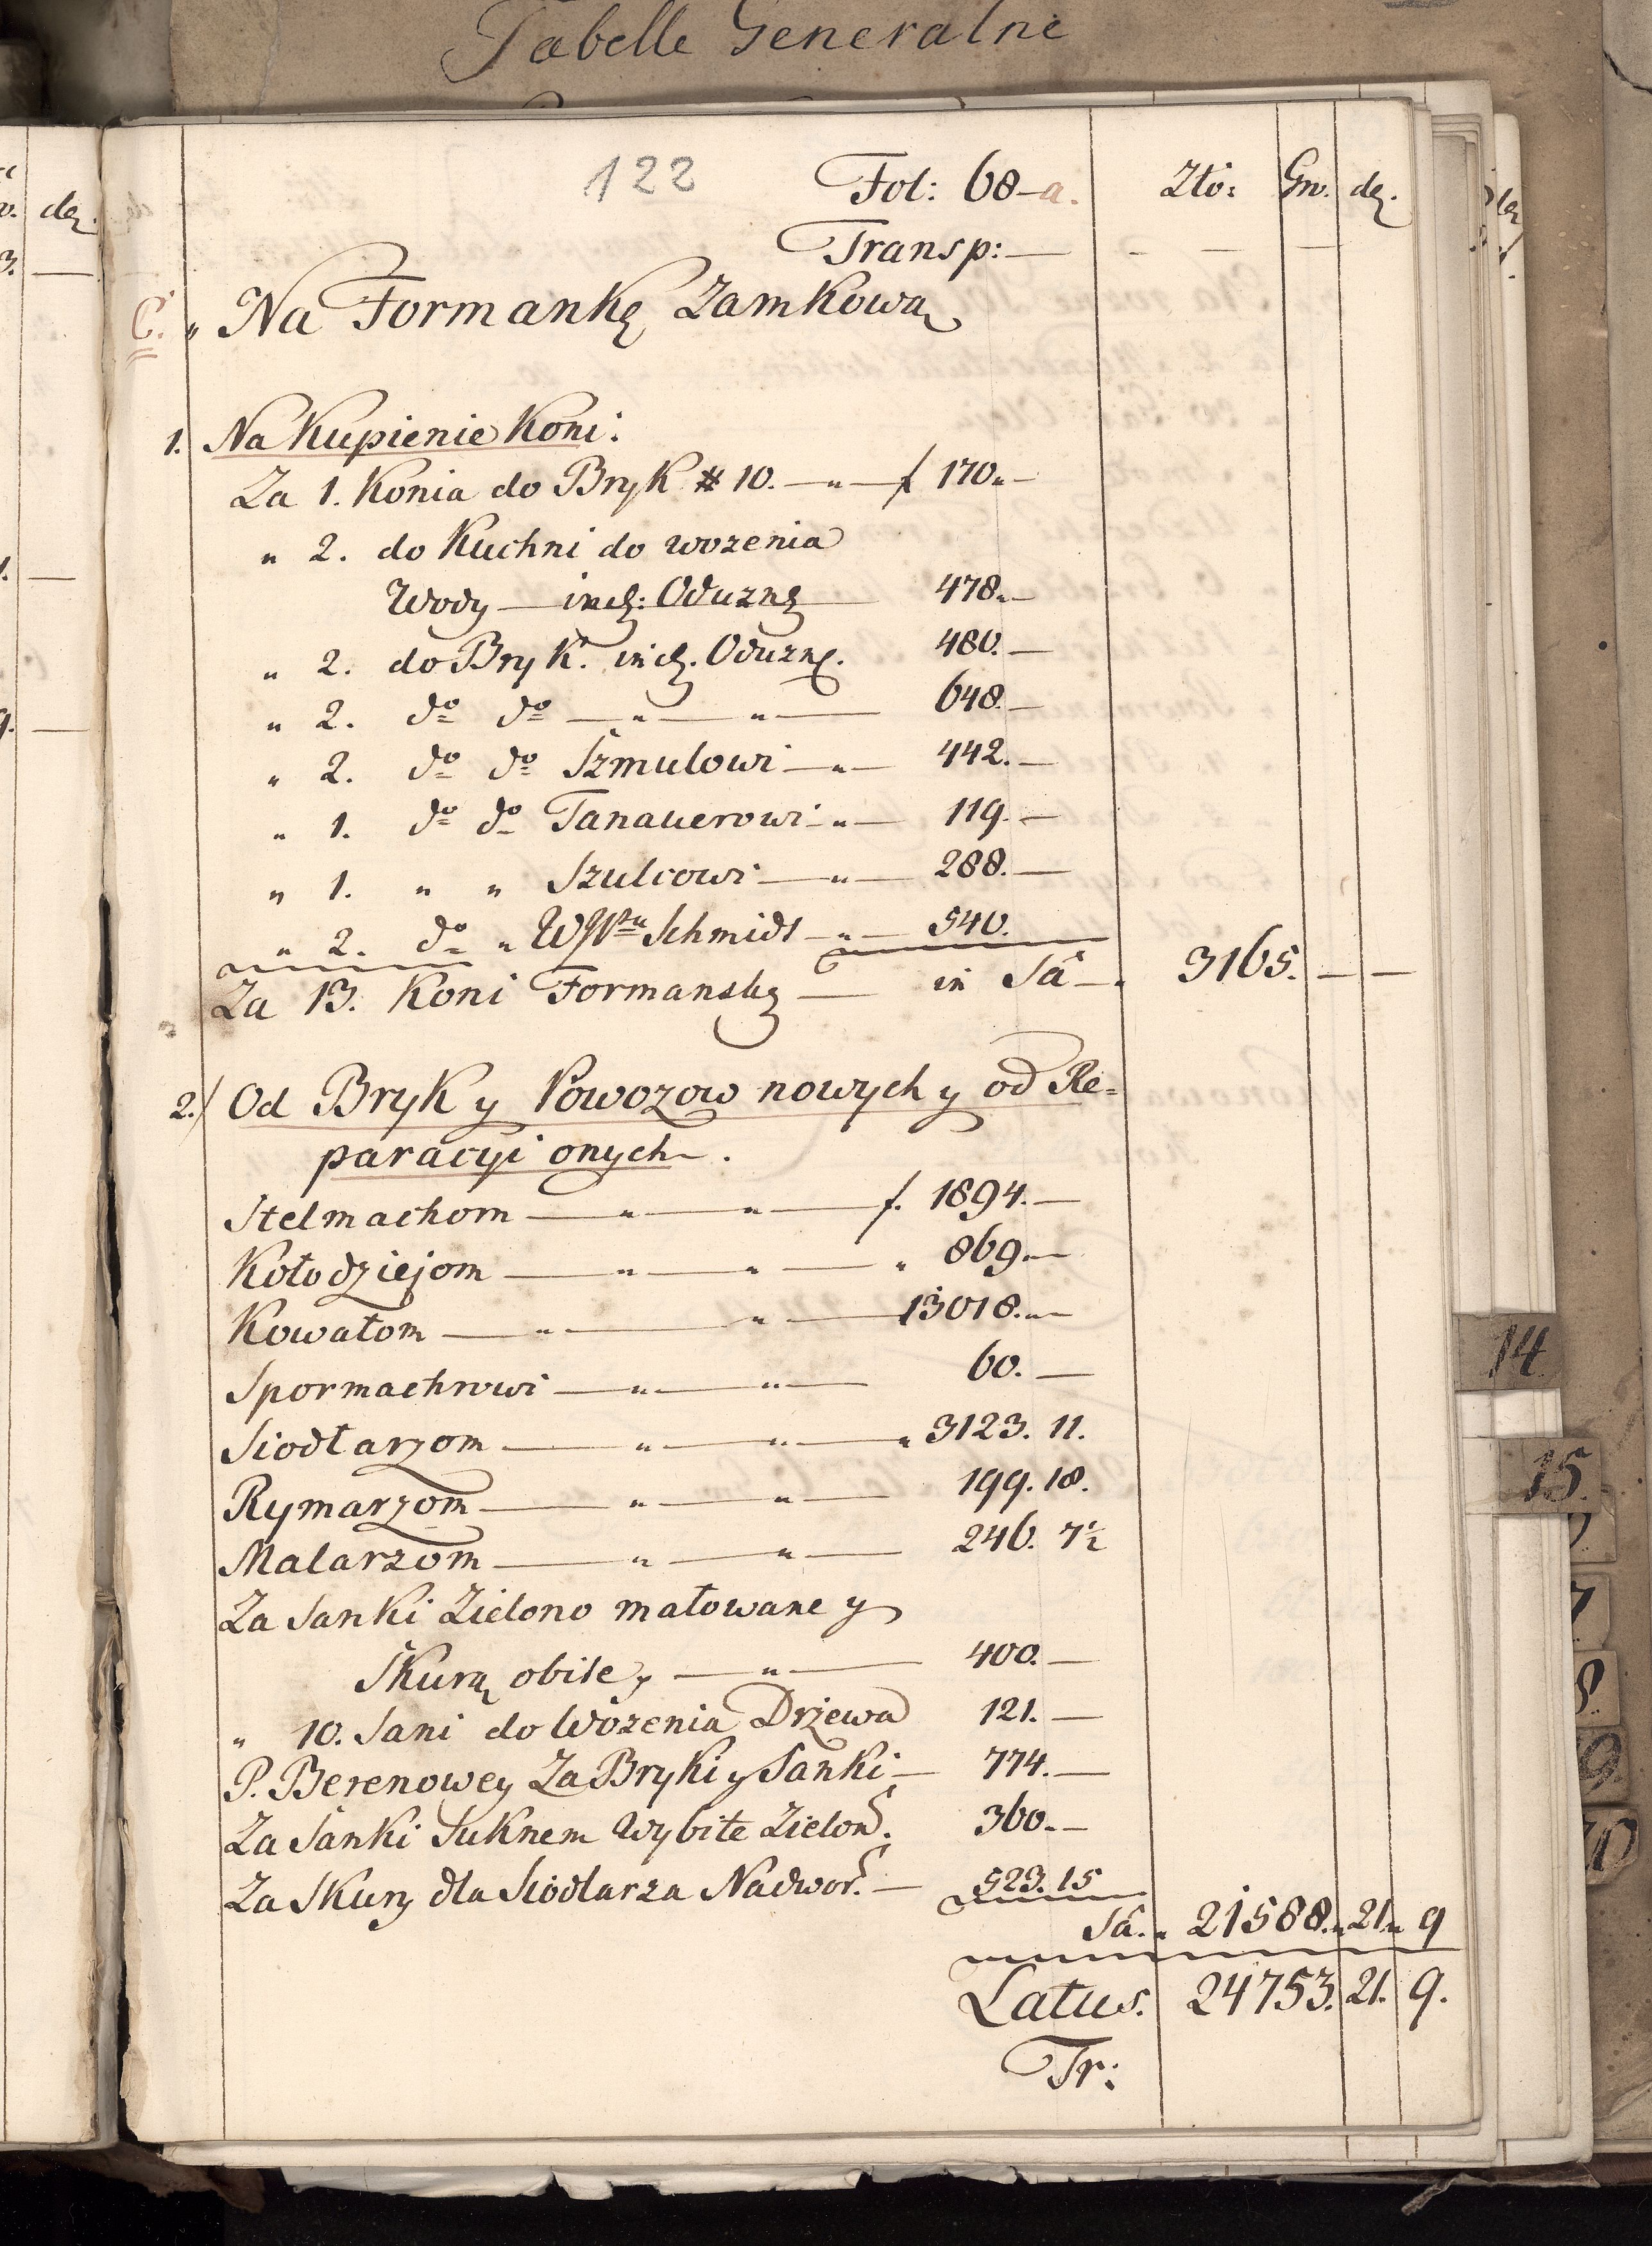 Tabelle Generalne
122
Fol: 68-a. Zło: Gr. de.
Transp: — - — —
C. „ Na Formankę Zamkową
1. Na Kupienie Koni:
Za 1. Konia do Bryk # 10. — „ — f 170.-
„ 2. do Kuchni do wozenia
Wody — incl: Oduzng — 478.-
„ 2. do Bryk. incl. Oduzng. 480. —
„ 2. do do — „ — „ — 648. —
„ 2. do do Szmulowi — „ — 442. —
„ 1. do do Tanauerowi - „ — 119. —
„ 1. „ „ Szulcowi — „ — 288. —
„ 2. do „ Schmidt - „ — 540.
Za 13. Koni Formanskg — in Sa — . 3165. — —
2./ Od Bryk y Powozow nowych y od Re=
paracyi onych .
Stelmachom — „ — „ — f. 1894. —
Kołodziejom — „ — „ — „ 869. —
Kowalom — „ — „ — 13018. „ —
Spormachrowi — „ — „ — 60. —
Siodłarzom — „ — „ — „ 3123. 11.
Rymarzom — „ — „ — 199. 18.
Malarzom — „ — „ — 246. 7½
Za Sanki Zielono małowane y
Skurą obite, — „ — 400. —
„ 10. Sani do Wożenia Drzewa 121. —
P. Berenowey Za Bryki y Sanki — 774. —
Za Sanki Suknem Wybite Zielon. 360. —
Za Skury dla Siodlarza Nadwor. — 523. 15
Sa. „ 21588. „ 21. „ 9
Latus. 24753. 21. 9.
Tr:
14.
15.